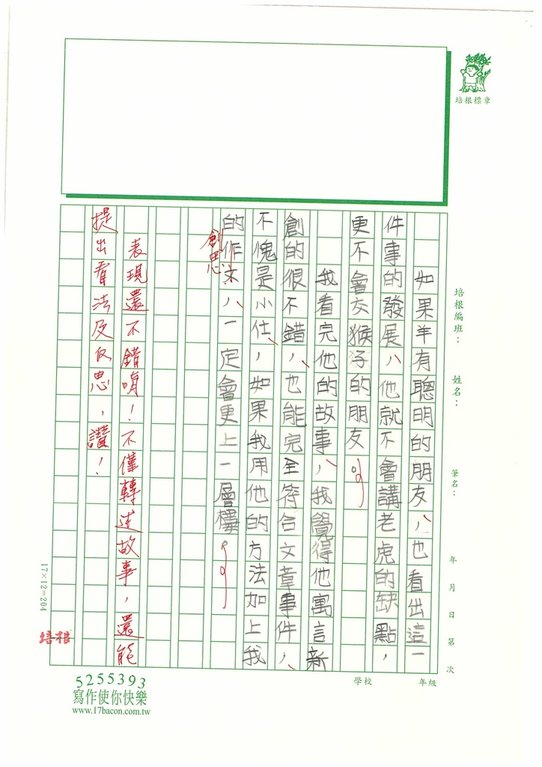 培根標章
培根編班：
姓名：
筆名：
年 月 日 第 次
學校
年級
如果羊有聰明的朋友，也看出這一
件事的發展，他就不會講老虎的缺點，
更不會交猴子的朋友。
我看完他的故事，我覺得他寓言新
創的很不錯，也能完全符合文章事件，
不愧是小仕，如果我用他的方法加上我
的作文，一定會更上一層樓。
創思
表現還不錯唷！不僅轉述故事，還能
提出看法及反思，讚！
培根
17×12=204
5255393
寫作使你快樂
www.17bacon.com.tw